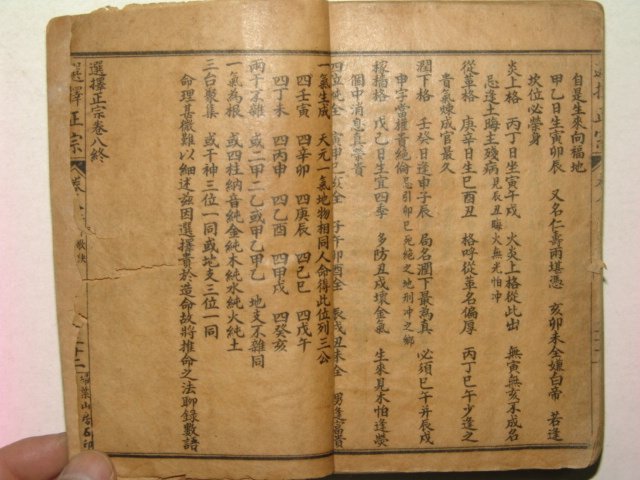 自是生來向福地
甲乙日生寅卯辰 又名仁壽兩堪憑 亥卯未全嫌白帝 若逢
坎位必榮身
炎上格 丙丁日生寅午戌 火炎上格從此出 無寅無亥不成名
忌逢土晦主殘病 見辰丑晦火無光怕冲
從革格 庚辛日生巳酉丑 格呼從革名偏厚 丙丁巳午少逢之
貴氣成官最久
潤下格 壬癸日逢申子辰 局名潤下最為真 必須巳午并辰戌
申字當權貴絕倫 忌引卯巳死絕之地刑冲之鄉
稼穡格 戊己日生宜四季 多防丑戌壞金氣 生來見木怕逢
個中消息真榮貴
四位純全 寅申巳亥全 子午卯酉全 辰戌丑未全
一氣生成 天元一氣地物相同人命得此位列三公
四壬寅 四辛卯 四庚辰 四己巳 四戊午
四丁未 四丙申 四乙酉 四甲戌 四癸亥
兩干不雜 或二甲二乙或甲乙甲乙 地支不雜同
一氣為根 或四柱納音純金純木純水純火純土
三台聚集 或干神三位一同或地支三位一同
命理善微難以細述茲因選擇貴於造命故將推命之法聊錄數語
選擇正宗卷八終
選擇正宗
卷八
歌訣
二十二
掃葉山房石印